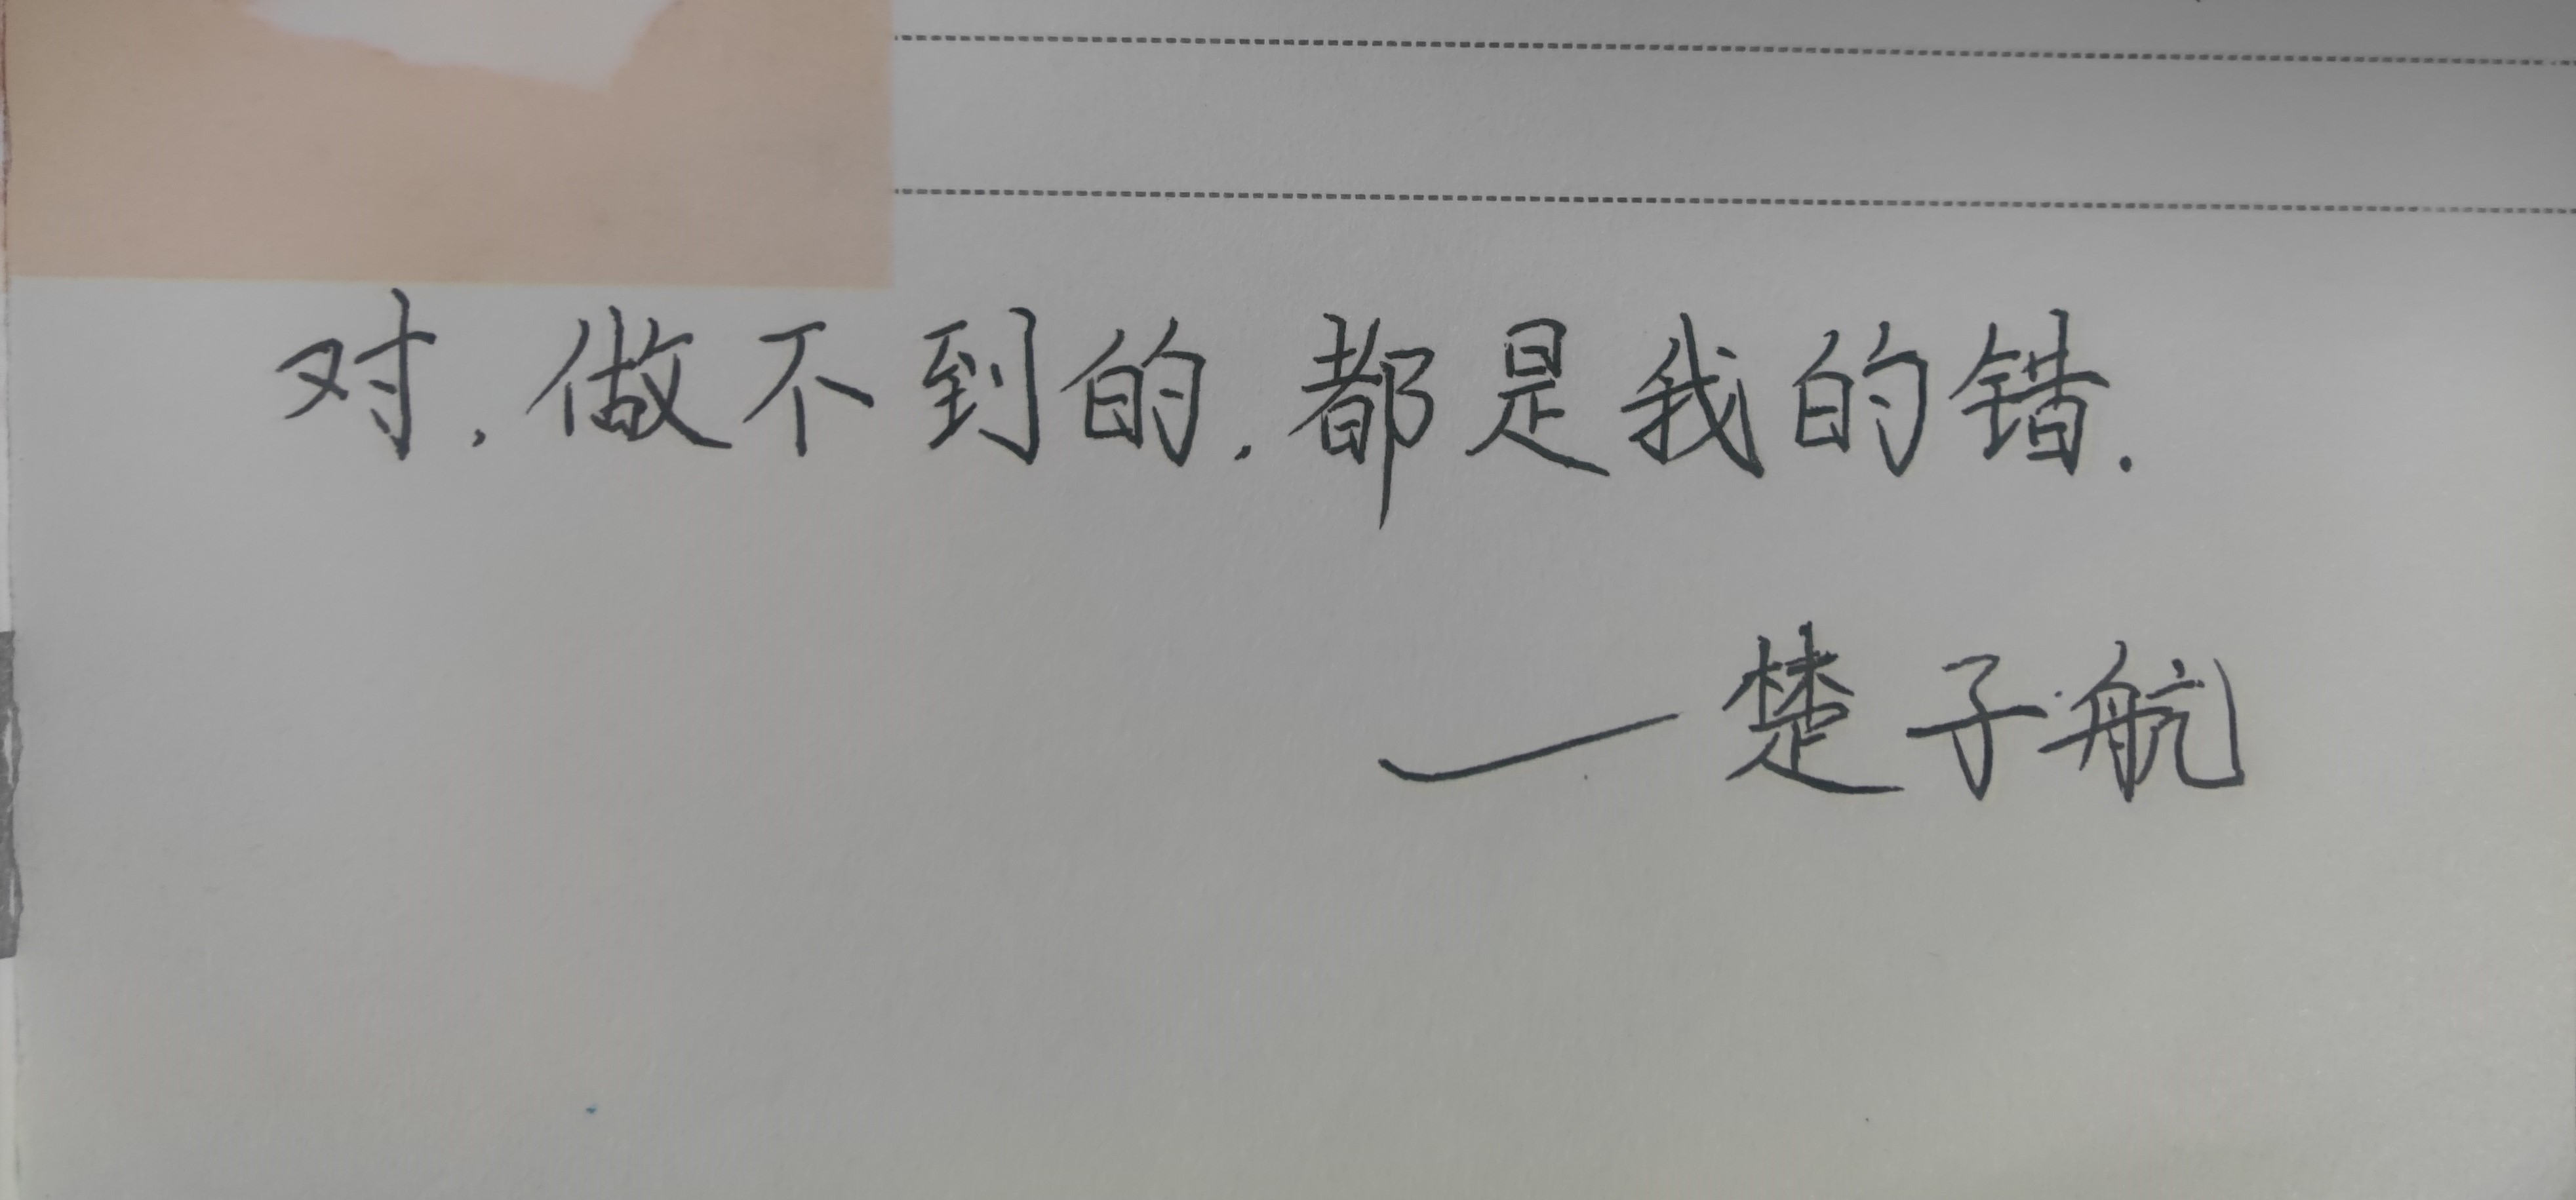 对,做不到的,都是我的错.
——楚子航